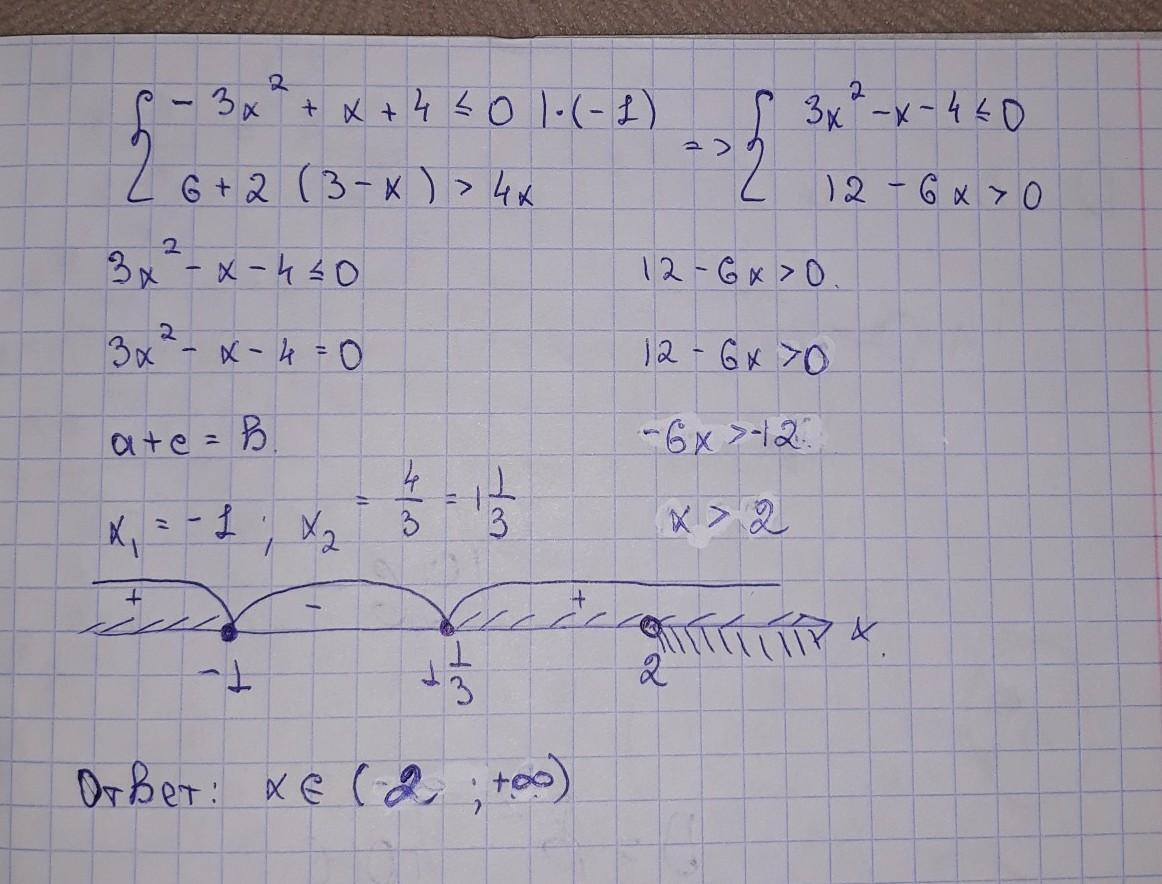 { - 3x² + x + 4 ≤ 0 |·(-1) => { 3x² - x - 4 ≤ 0
6 + 2 (3 - x) > 4x 12 - 6x > 0
3x² - x - 4 ≤ 0 12 - 6x > 0.
3x² - x - 4 = 0 12 - 6x > 0
a + c = B. -6x > -12.
x₁ = -1 ; x₂ = 4/3 = 1 1/3 x > 2
+ - +
-1 1 1/3 2 x.
Ответ: x ∈ (-2 ; +∞)